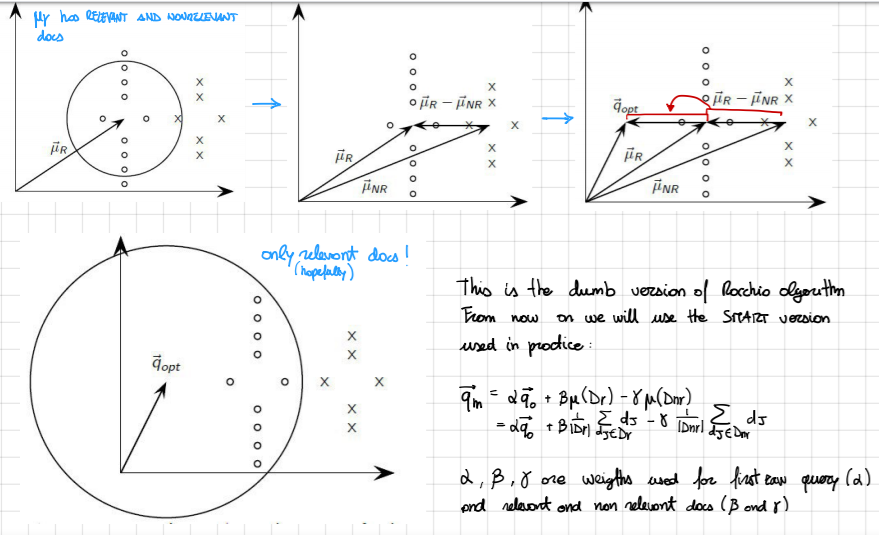 μr has RELEVANT AND NONRELEVANT
docs
μ⃗R
μ⃗R − μ⃗NR
μ⃗R
μ⃗NR
q⃗opt
μ⃗R − μ⃗NR
μ⃗R
μ⃗NR
only relevant docs!
(hopefully)
q⃗opt
This is the dumb version of Rocchio algorithm
From now on we will use the SMART version
used in practice:
q⃗m = αq⃗o + βμ(Dr) − γμ(Dnr)
= αq⃗o + β 1/|Dr| Σ dj∈Dr dj − γ 1/|Dnr| Σ dj∈Dnr dj
α, β, γ are weigths used for first raw query (α)
and relevant and non relevant docs (β and γ)